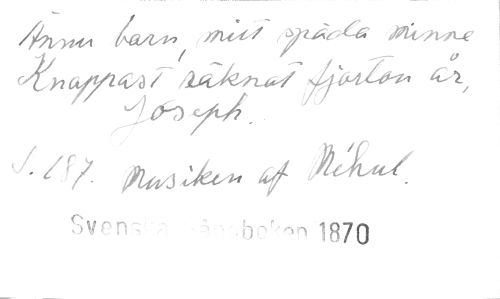 Ännu barn, mitt späda minne
Knappast räknat fjorton år,
Joseph.
S. 187. Musiken af Méhul.
Svenska Sångboken 1870